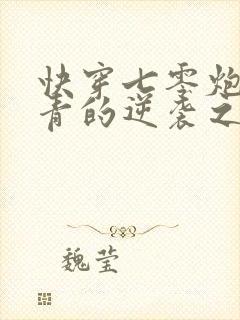 快穿七零炮
青的逆袭之
魏莹